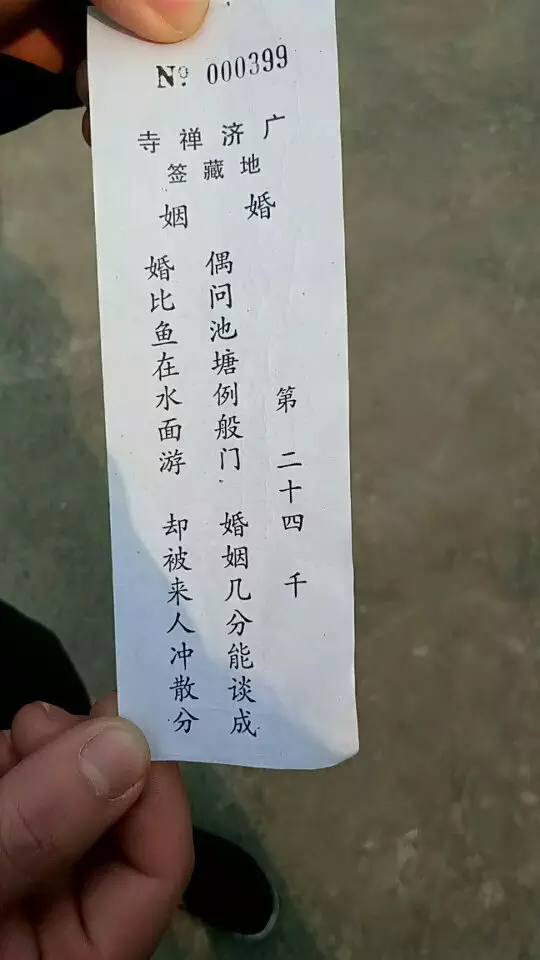 Nº 000399
广济禅寺
地藏签
婚姻
第二十四千
偶问池塘例般门 婚姻几分能谈成
婚比鱼在水面游 却被来人冲散分